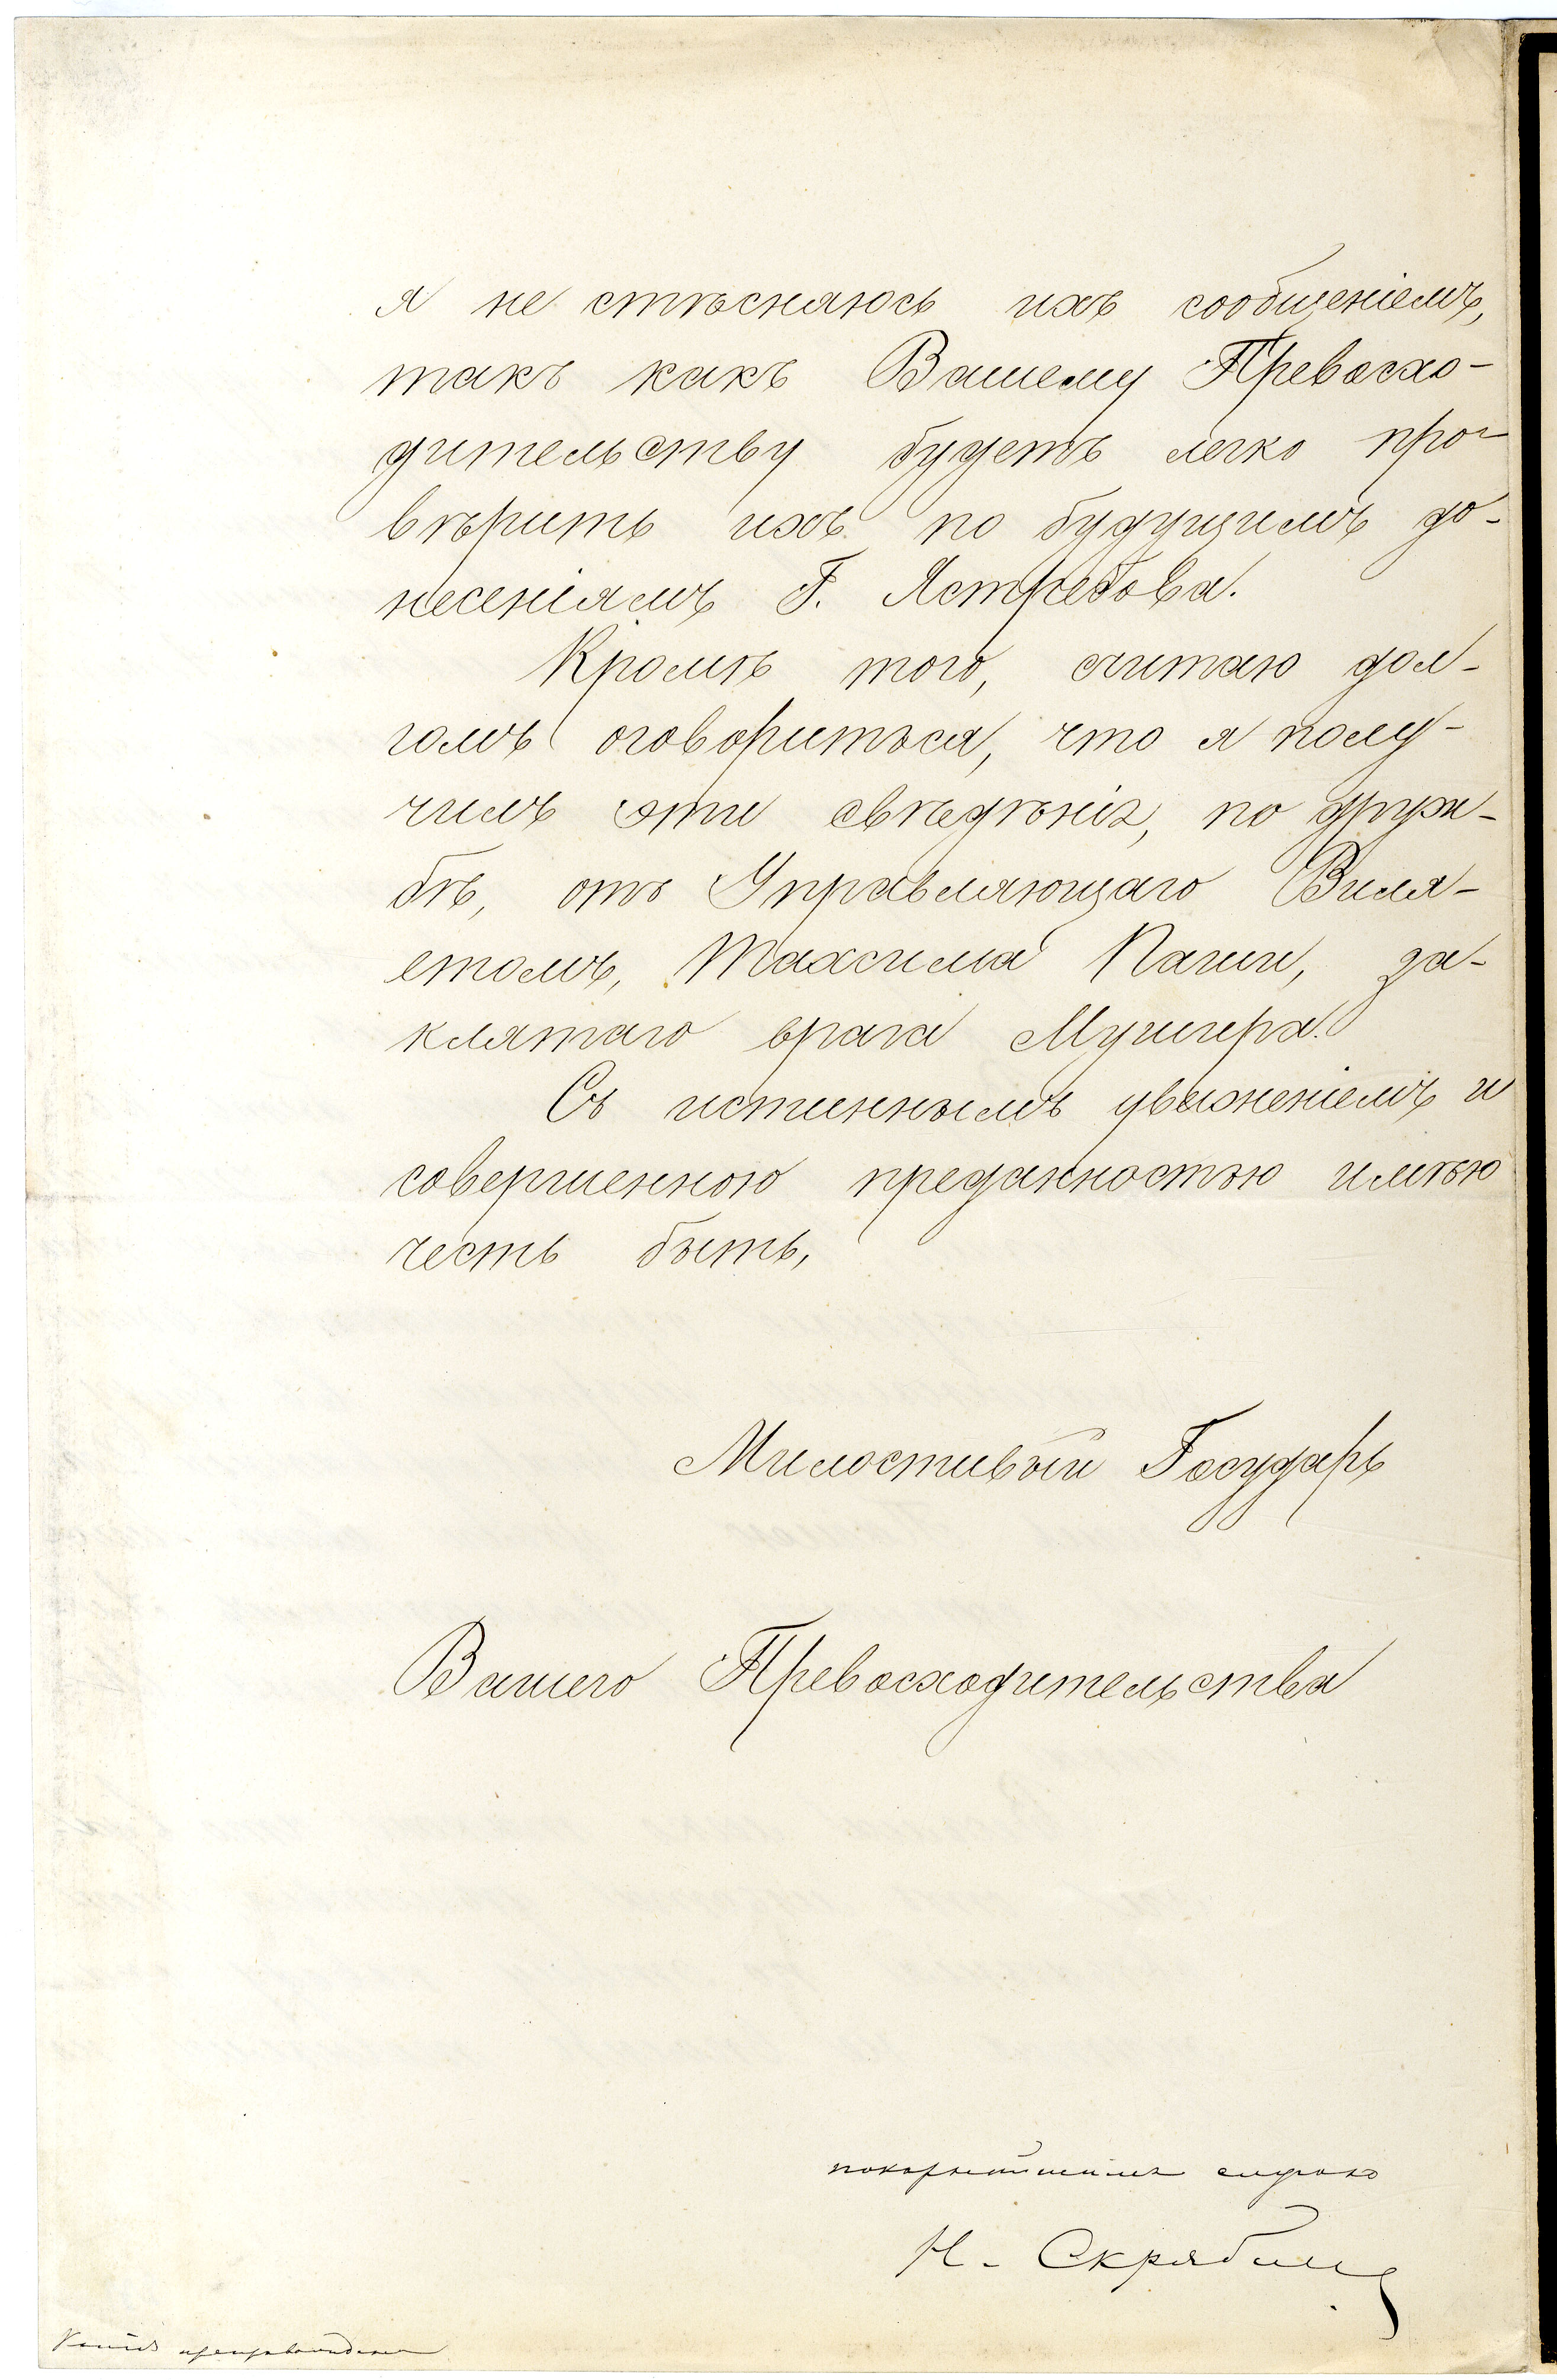 я не стѣсняюсь ихъ сообщеніемъ,
такъ какъ Вашему Превосхо-
дительству будетъ легко про-
вѣрить ихъ по будущимъ до-
несеніямъ Г. Ястребова.
Кромѣ того, считаю дол-
гомъ оговориться, что я полу-
чилъ эти свѣдѣнія, по друж-
бѣ, отъ Управляющаго Виля-
етомъ, Тахсима Паши, за-
клятаго врага Мушира.
Съ истиннымъ уваженіемъ и
совершенною преданностью имѣю
честь быть,
Милостивый Государь
Вашего Превосходительства
покорнѣйшимъ слугою
Н. Скрябинъ
Копія препровождена